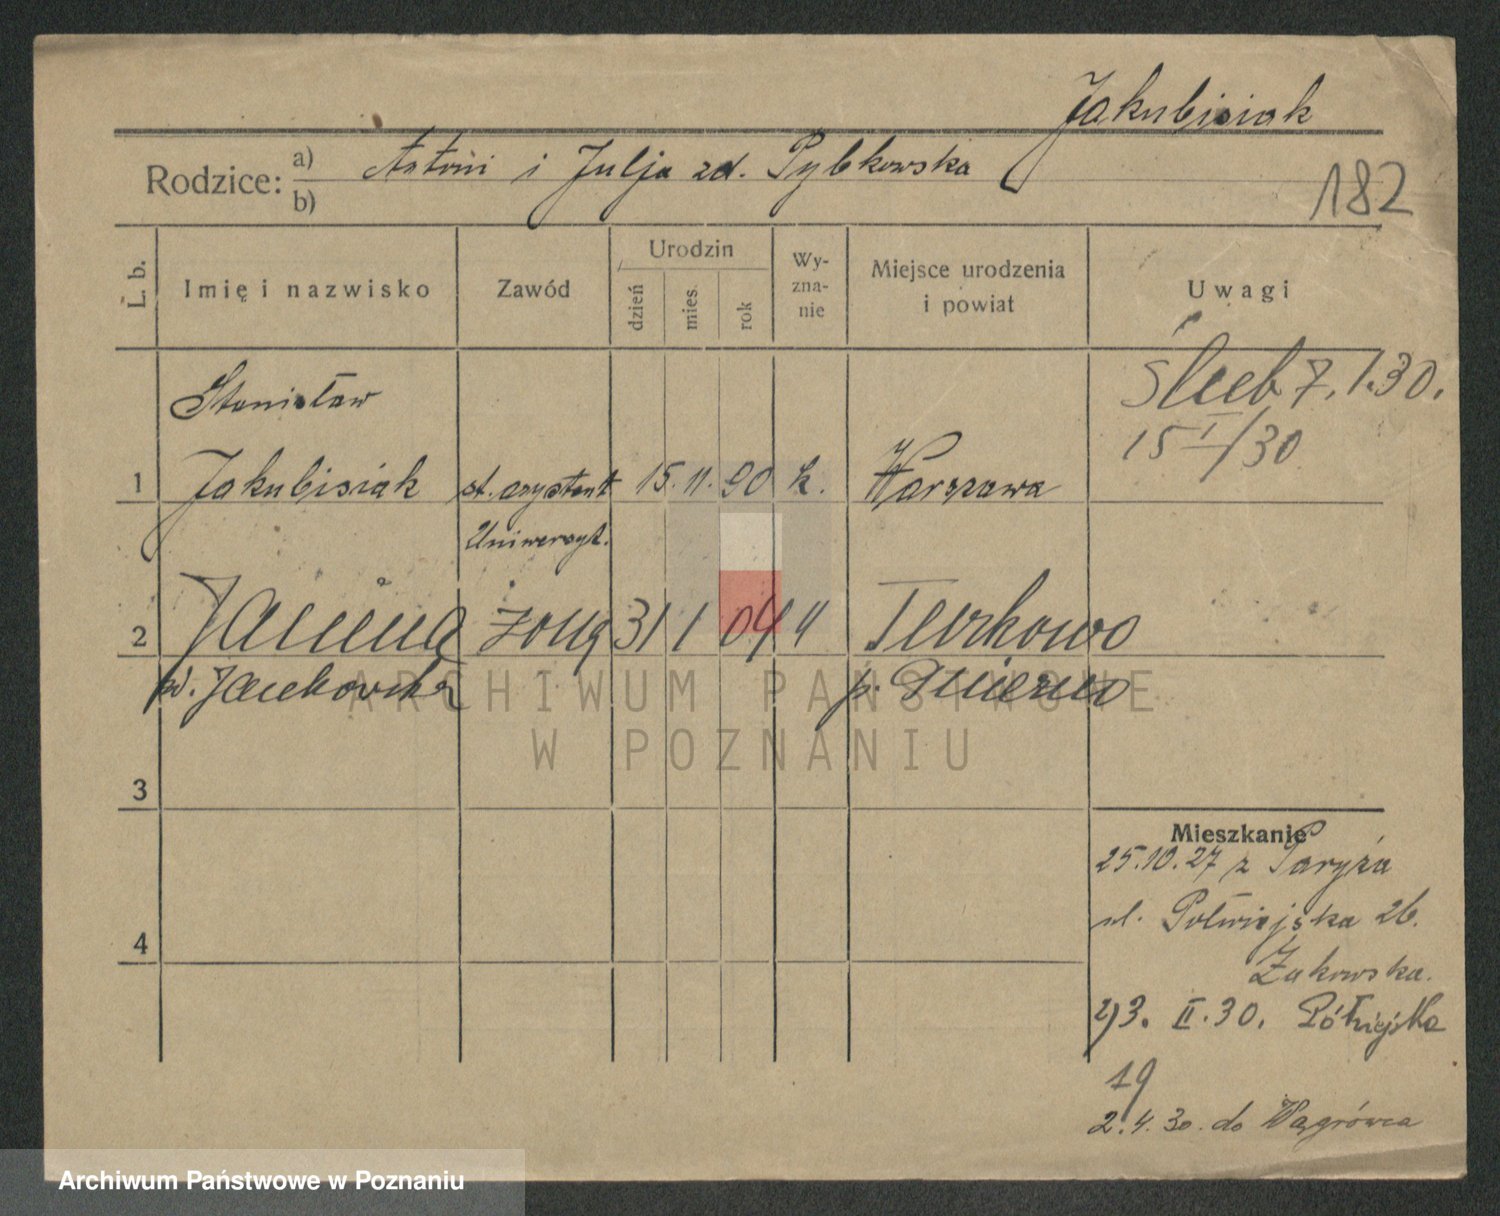 Jakubisiak
Rodzice: a) Antoni i Julja zd. Pybkowska
b)
182
L. b.
Imię i nazwisko
Zawód
Urodzin
dzień
mies.
rok
Wy-
zna-
nie
Miejsce urodzenia
i powiat
Uwagi
Stanisław
ślub 7.1.30.
15 I/30
1 Jakubisiak st. asystent 15. 11. 90 k. Warszawa
Uniwersyt.
2 Janina żona 31 1 04 " Turkowo
p.
3
4
Mieszkanie
25.10.27 z Paryża
ul. Półwiejska 26.
Żakowska.
2) 3. II. 30. Półwiejska
19
2.4.30. do Wągrówca
ARCHIWUM PAŃSTWOWE
W POZNANIU
Archiwum Państwowe w Poznaniu